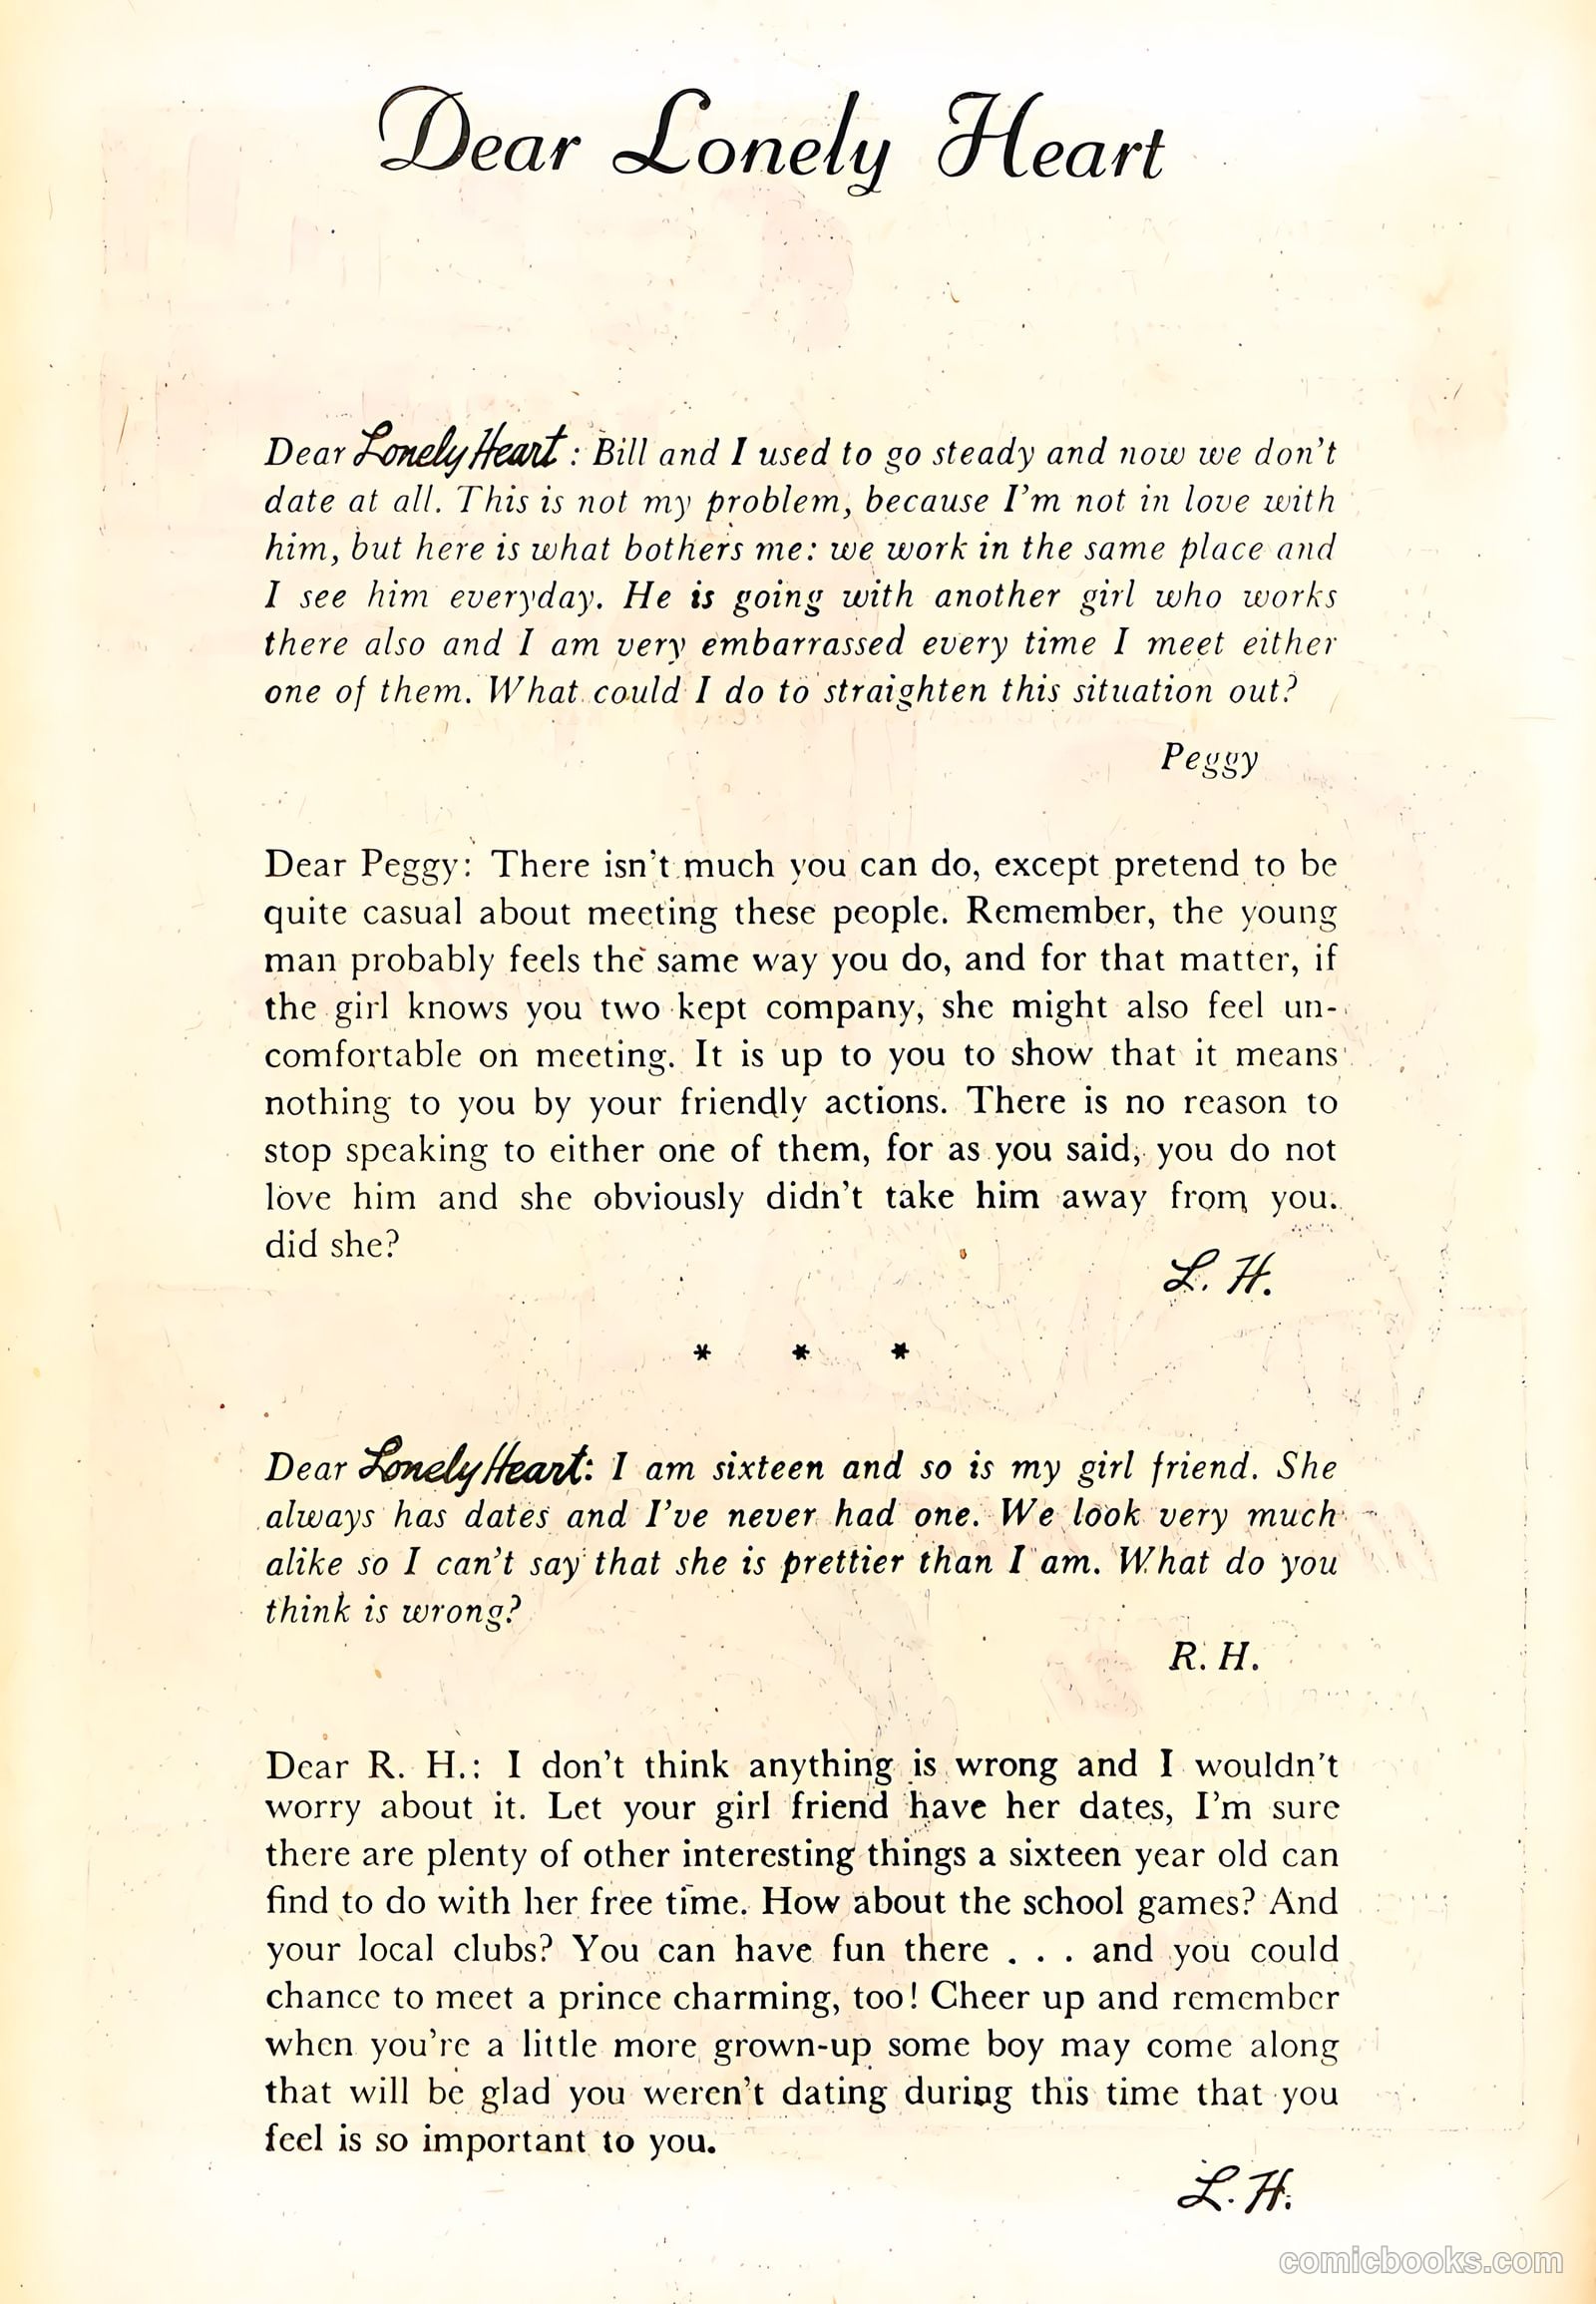 Dear Lonely Heart
Dear Lonely Heart : Bill and I used to go steady and now we don't
date at all. This is not my problem, because I'm not in love with
him, but here is what bothers me: we work in the same place and
I see him everyday. He is going with another girl who works
there also and I am very embarrassed every time I meet either
one of them. What could I do to straighten this situation out?
Peggy
Dear Peggy: There isn't much you can do, except pretend to be
quite casual about meeting these people. Remember, the young
man probably feels the same way you do, and for that matter, if
the girl knows you two kept company, she might also feel un-
comfortable on meeting. It is up to you to show that it means
nothing to you by your friendly actions. There is no reason to
stop speaking to either one of them, for as you said, you do not
love him and she obviously didn't take him away from you.
did she?
L. H.
* * *
Dear Lonely Heart: I am sixteen and so is my girl friend. She
always has dates and I've never had one. We look very much
alike so I can't say that she is prettier than I am. What do you
think is wrong?
R. H.
Dear R. H.: I don't think anything is wrong and I wouldn't
worry about it. Let your girl friend have her dates, I'm sure
there are plenty of other interesting things a sixteen year old can
find to do with her free time. How about the school games? And
your local clubs? You can have fun there . . . and you could
chance to meet a prince charming, too! Cheer up and remember
when you're a little more grown-up some boy may come along
that will be glad you weren't dating during this time that you
feel is so important to you.
L. H.
comicbooks.com